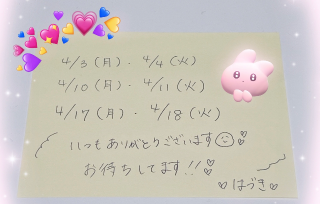 4/3(月)・4/4(火)
4/10(月)・4/11(火)
4/17(月)・4/18(火)
いつもありがとうございます
お待ちしてます!!
はづき